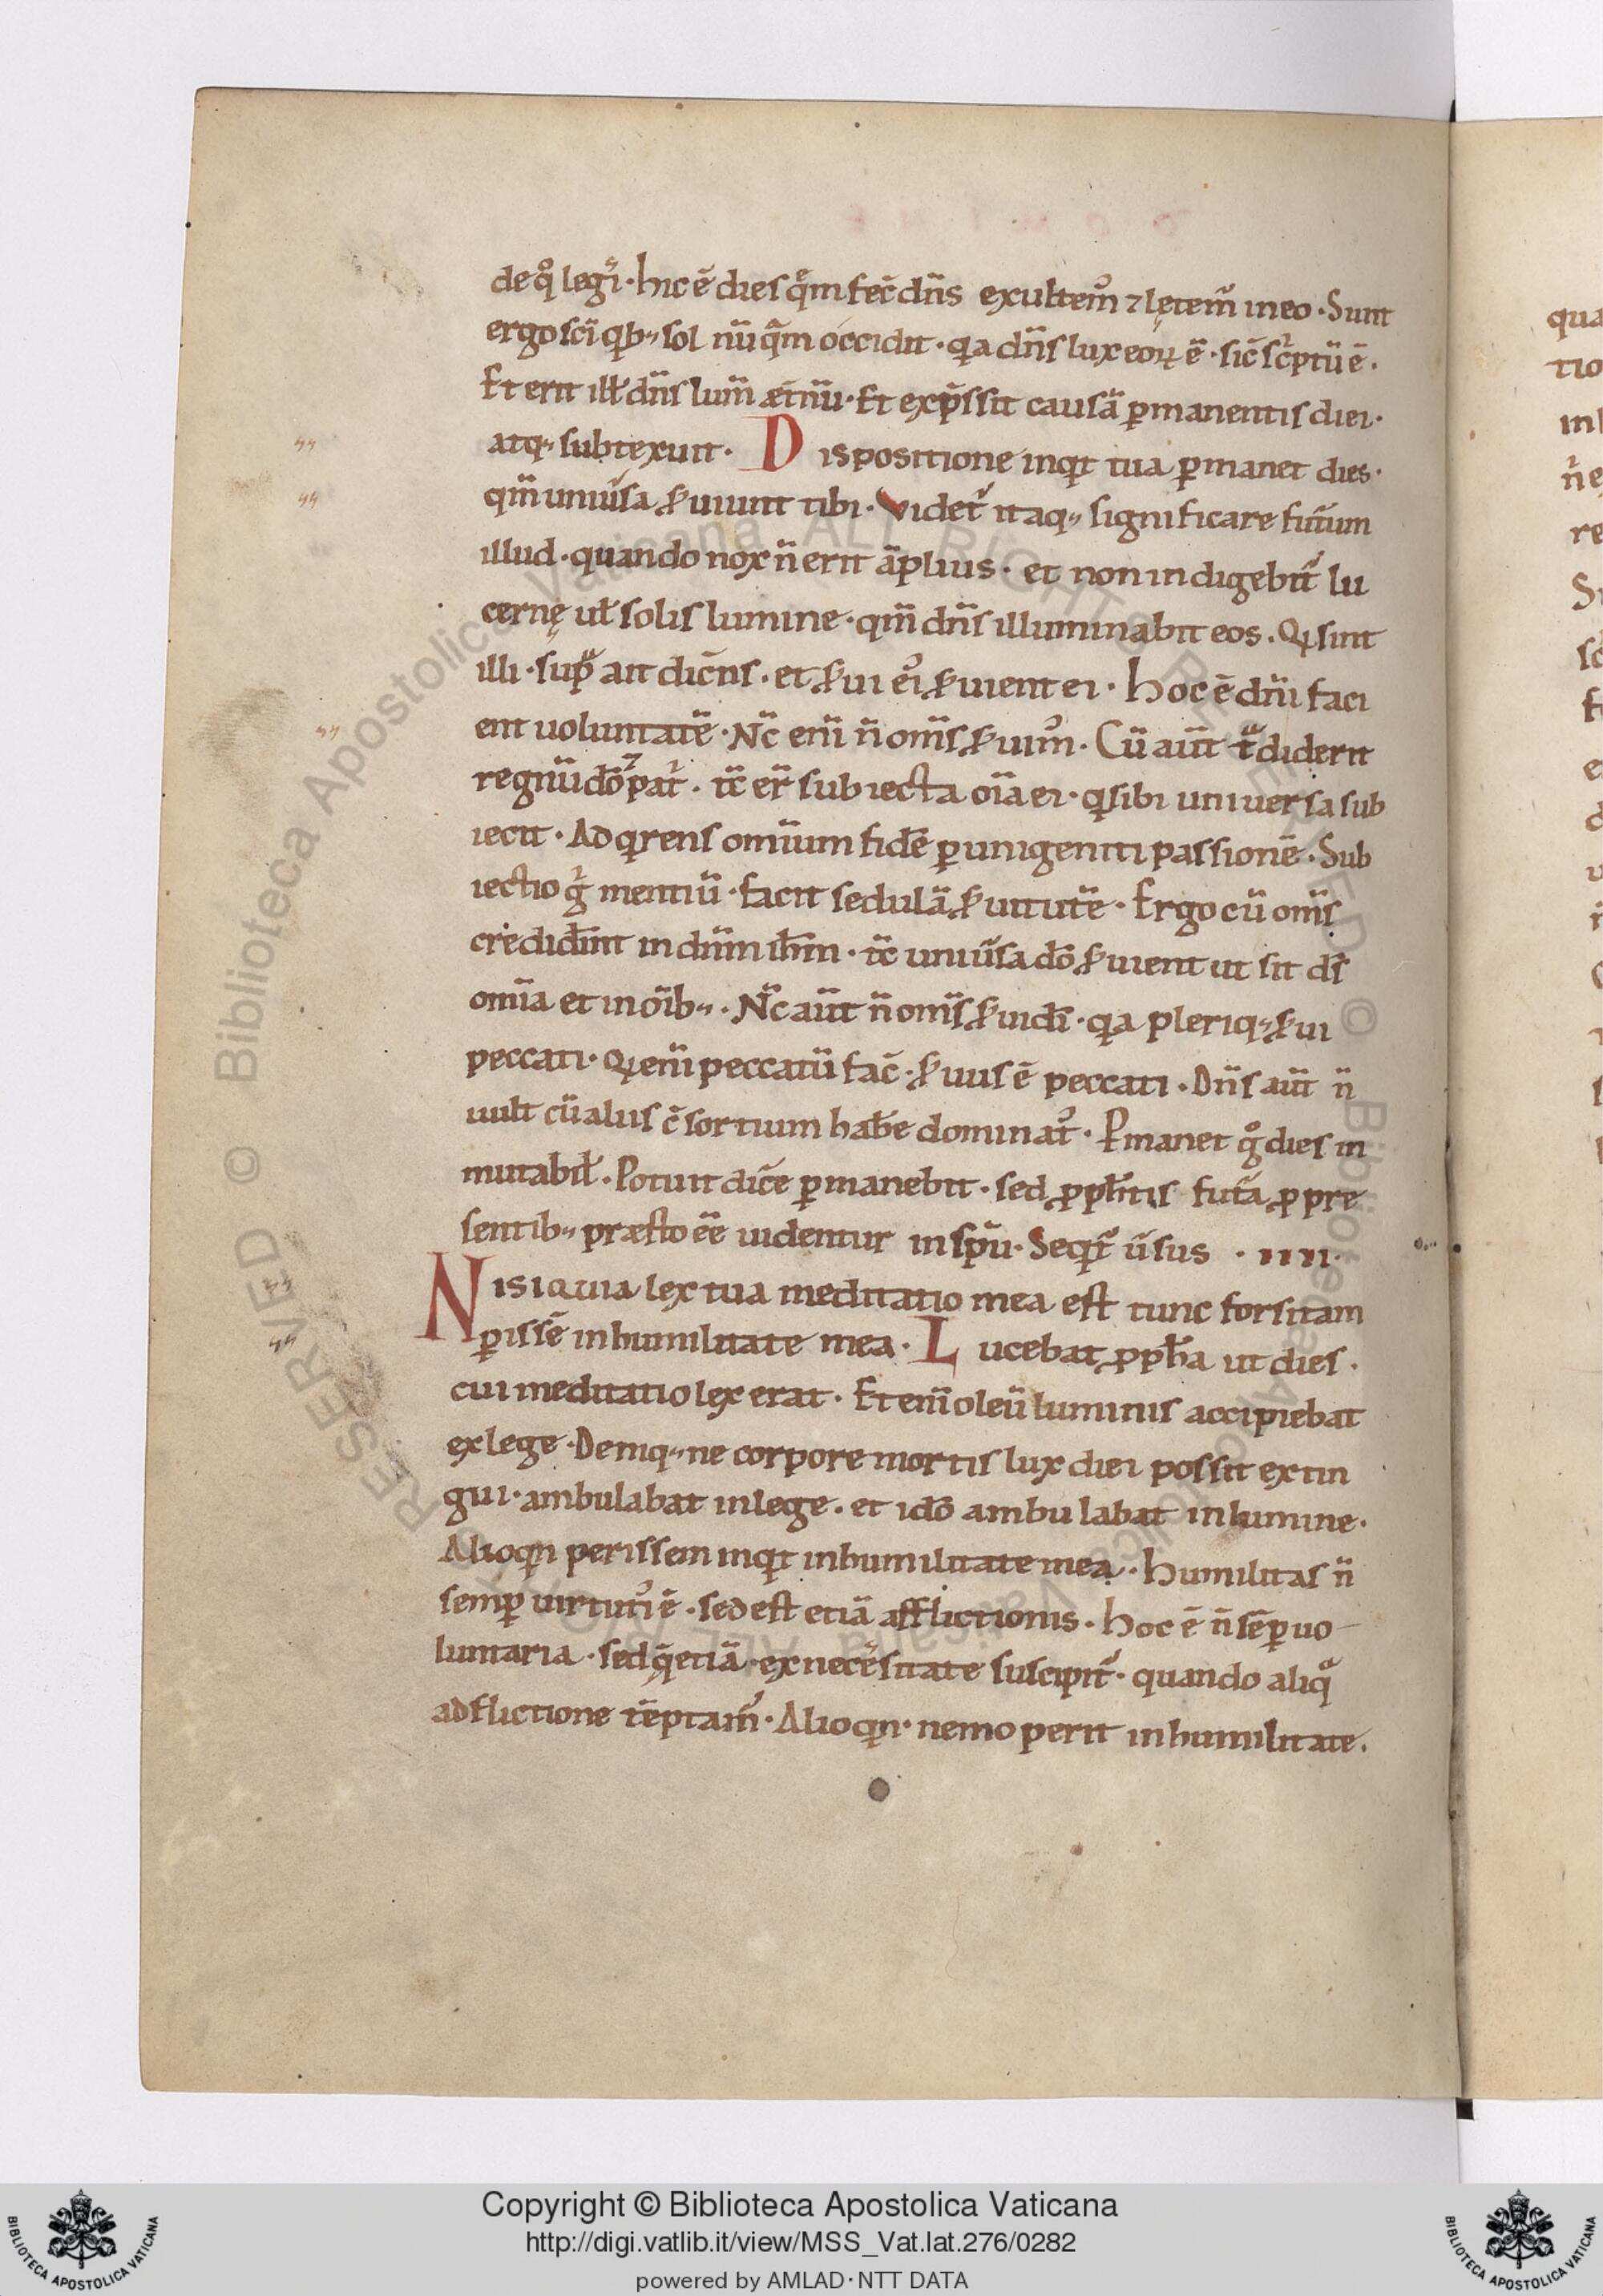 de qͦ legiꞇ̃ · hic ē dies quͣm fec̄ dn̄s exultem᷒ ⁊ lętem᷒ in eo · Sunt
ergo sc̄i qib; sol nūquͣm occidit · qia dn̄s lux eoꝝ ē · sic̄ scͥptū ē ·
Et erit ill̄ dn̄s lum̄ æt̄nū · Et exp̄ssit causā ꝑmanentis diei ·
atq; subtexuit · Dispositione inqit tua ꝑmanet dies ·
qm̄ uniu̾sa s̾uiunt tibi · Videt᷒ itaq; significare fut̾um
illud · quando nox n̄ erit āplius · et non indigebit̾ lu
cernę ut̄ solis lumine · qm̄ dn̄s illuminabit eos . Qi sint
illi · supͣ ait dicēns · et s̾ui ei᷒ s̾uient ei · Hoc ē dn̄i faci
ent uoluntatē · Nc̄ eni̅ n̄ om̄s s̾uim᷒ · Cū aūt tͣdiderit
regnū dō ⁊ patͥ · tc̄ er̄ subiecta oi̅a ei · qi sibi uniuersa sub
iecit · Adqirens omīum fidē ꝑ unigeniti passionē · Sub
iectio gͥ mentiū · facit sedulā s̾uitutē · Ergo cū om̄s
credidīnt in dn̄m ih̄m · tc̄ uniu̾sa dō s̾uient ut sit ds̄
omīa et in oi̅b; . Nc̄ aūt n̄ om̄s s̾ui dī · qia pleriq; s̾ui
peccati · Qi eni̅ peccatū fac̄ · s̾uus ē peccati . Dn̄s aūt n̄
uult cū aliis c̄sortium habe̅ dominat᷒ · Ꝑmanet gͦ dies in
mutabil̄ . Potuit dice̅ ꝑmanebit · sed ꝓph̄tis fut̾a ꝓ pre
sentib; præsto eē uidentur in sp̄u · Seqit᷒ u̾sus · IIII ·
Nisi quia lex tua meditatio mea est tunc forsitam
ꝑissē in humilitate mea · Lucebat ꝓph̄a ut dies .
cui meditatio lex erat · Et eni̅ oleū luminis accipiebat
ex lege · Deniq; ne corpore mortis lux diei possit extin
gui · ambulabat in lege . et idō ambulabat in lumine ·
Alioqin perissem inqit in humilitate mea · Humilitas n̄
semꝑ uirtuti᷒ ē · sed est etiā afflictionis · Hoc ē n̄ sēꝑ uo
luntaria · sed q̨̄ etiā · ex necessitate suscipit᷒ · quando aliqͣ
adflictione tēptam᷒ · Alioqin · nemo perit in humilitate .
Copyright © Biblioteca Apostolica Vaticana
http://digi.vatlib.it/view/MSS_Vat.lat.276/0282
powered by AMLAD·NTT DATA